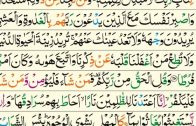 صْبِرْ نَفْسَكَ مَعَ الَّذِينَ يَدْعُونَ رَبَّهُم بِالْغَدَوٰةِ وَا
يُرِيدُونَ وَجْهَهُۥ وَلَا تَعْدُ عَيْنَاكَ عَنْهُمْ تُرِيدُ زِينَةَ الْ
وَلَا تُطِعْ مَنْ أَغْفَلْنَا قَلْبَهُۥ عَن ذِكْرِنَا وَاتَّبَعَ هَوَىٰهُ وَكَانَ أَمْرُهُۥ
وَقُلِ الْحَقُّ مِن رَّبِّكُمْ فَمَن شَآءَ فَلْيُؤْمِن وَمَن شَآ
فَلْيَكْفُرْ إِنَّآ أَعْتَدْنَا لِلظَّٰلِمِينَ نَارًا أَحَاطَ بِهِمْ سُرَادِقُهَا وَ